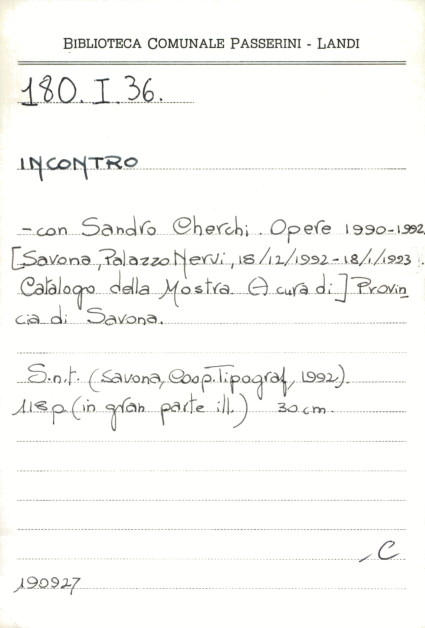 BIBLIOTECA COMUNALE PASSERINI - LANDI
180. I. 36.
INCONTRO
- con Sandro Cherchi. Opere 1990-1992
[Savona, Palazzo Nervi, 18/12/1992 - 18/1/1993.
Catalogo della Mostra. (A cura di] Provin
cia di Savona.
S.n.t. (Savona, Coop.Tipograf, 1992).
118p. (in gran parte ill.) 30 cm.
C
190927